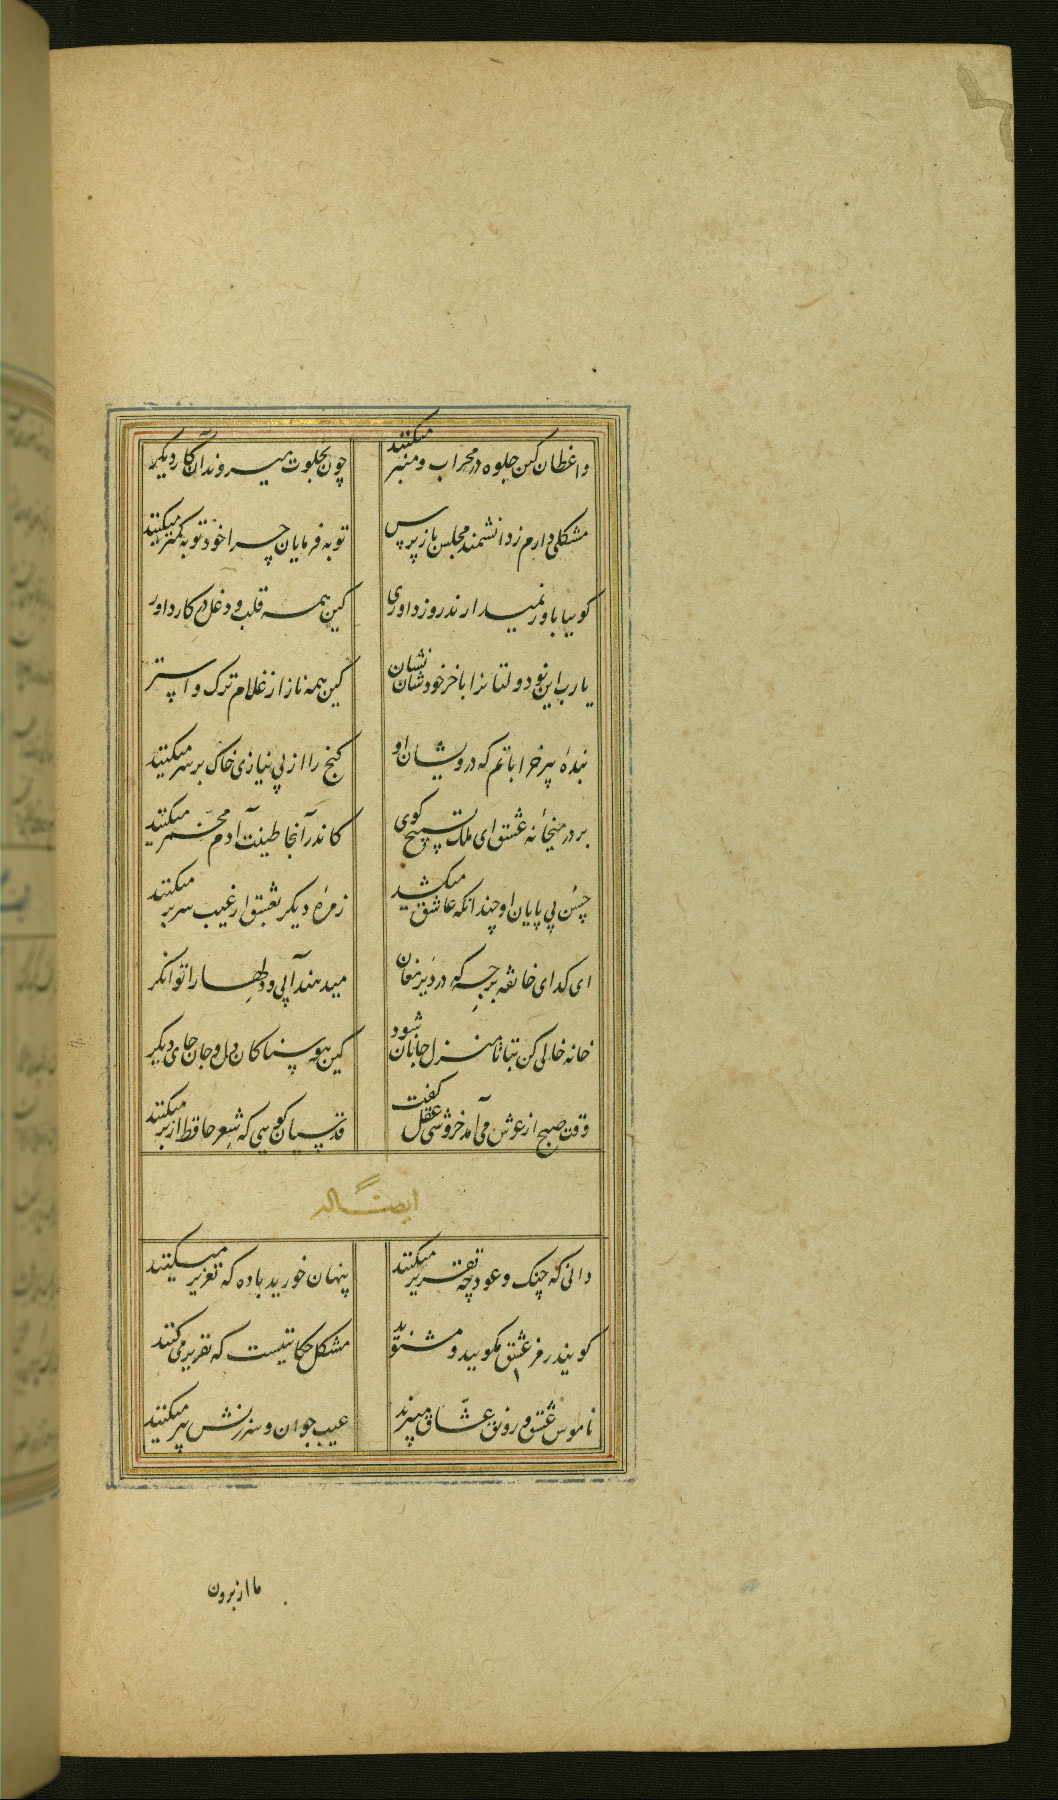 واعظان کین جلوه در محراب و منبر میکنند چون بخلوت میروند آن کار دیگر
مشکلی دارم ز دانشمند مجلس باز پرس توبه فرمایان چرا خود توبه کمتر میکنند
گوییا باور نمیدارند روز داوری کین همه قلب و دغل در کار داور
یارب این نو دولتانرا با خر خودشان نشان کین همه ناز از غلام ترک و استر
بندهٔ پیر خراباتم که درویشان او گنج را از بی نیازی خاک بر سر میکنند
بر در میخانهٔ عشق ای ملک تسبیح گوی کاندر آنجا طینت آدم مخمر میکنند
حسن بی پایان او چندانکه عاشق میکشد زمرهٔ دیگر بعشق از غیب سر بر میکنند
ای گدای خانقه برجه که در دیر مغان میدهند آبی و دلها را توانگر
خانه خالی کن بتا تا منزل جانان شود کین هوسناکان دل و جان جای دیگر
وقت صبح از عرش می آمد خروشی عقل گفت قدسیان گویی که شعر حافظ از بر میکنند
ایضاً له
دانی که چنگ و عود چه تقریر میکنند پنهان خورید باده که تعزیر میکنند
گویند رمز عشق مگویید و مشنوید مشکل حکایتیست که تقریر می کنند
ناموس عشق و رونق عشّاق میبرند عیب جوان و سرزنش پیر میکنند
ما از برون